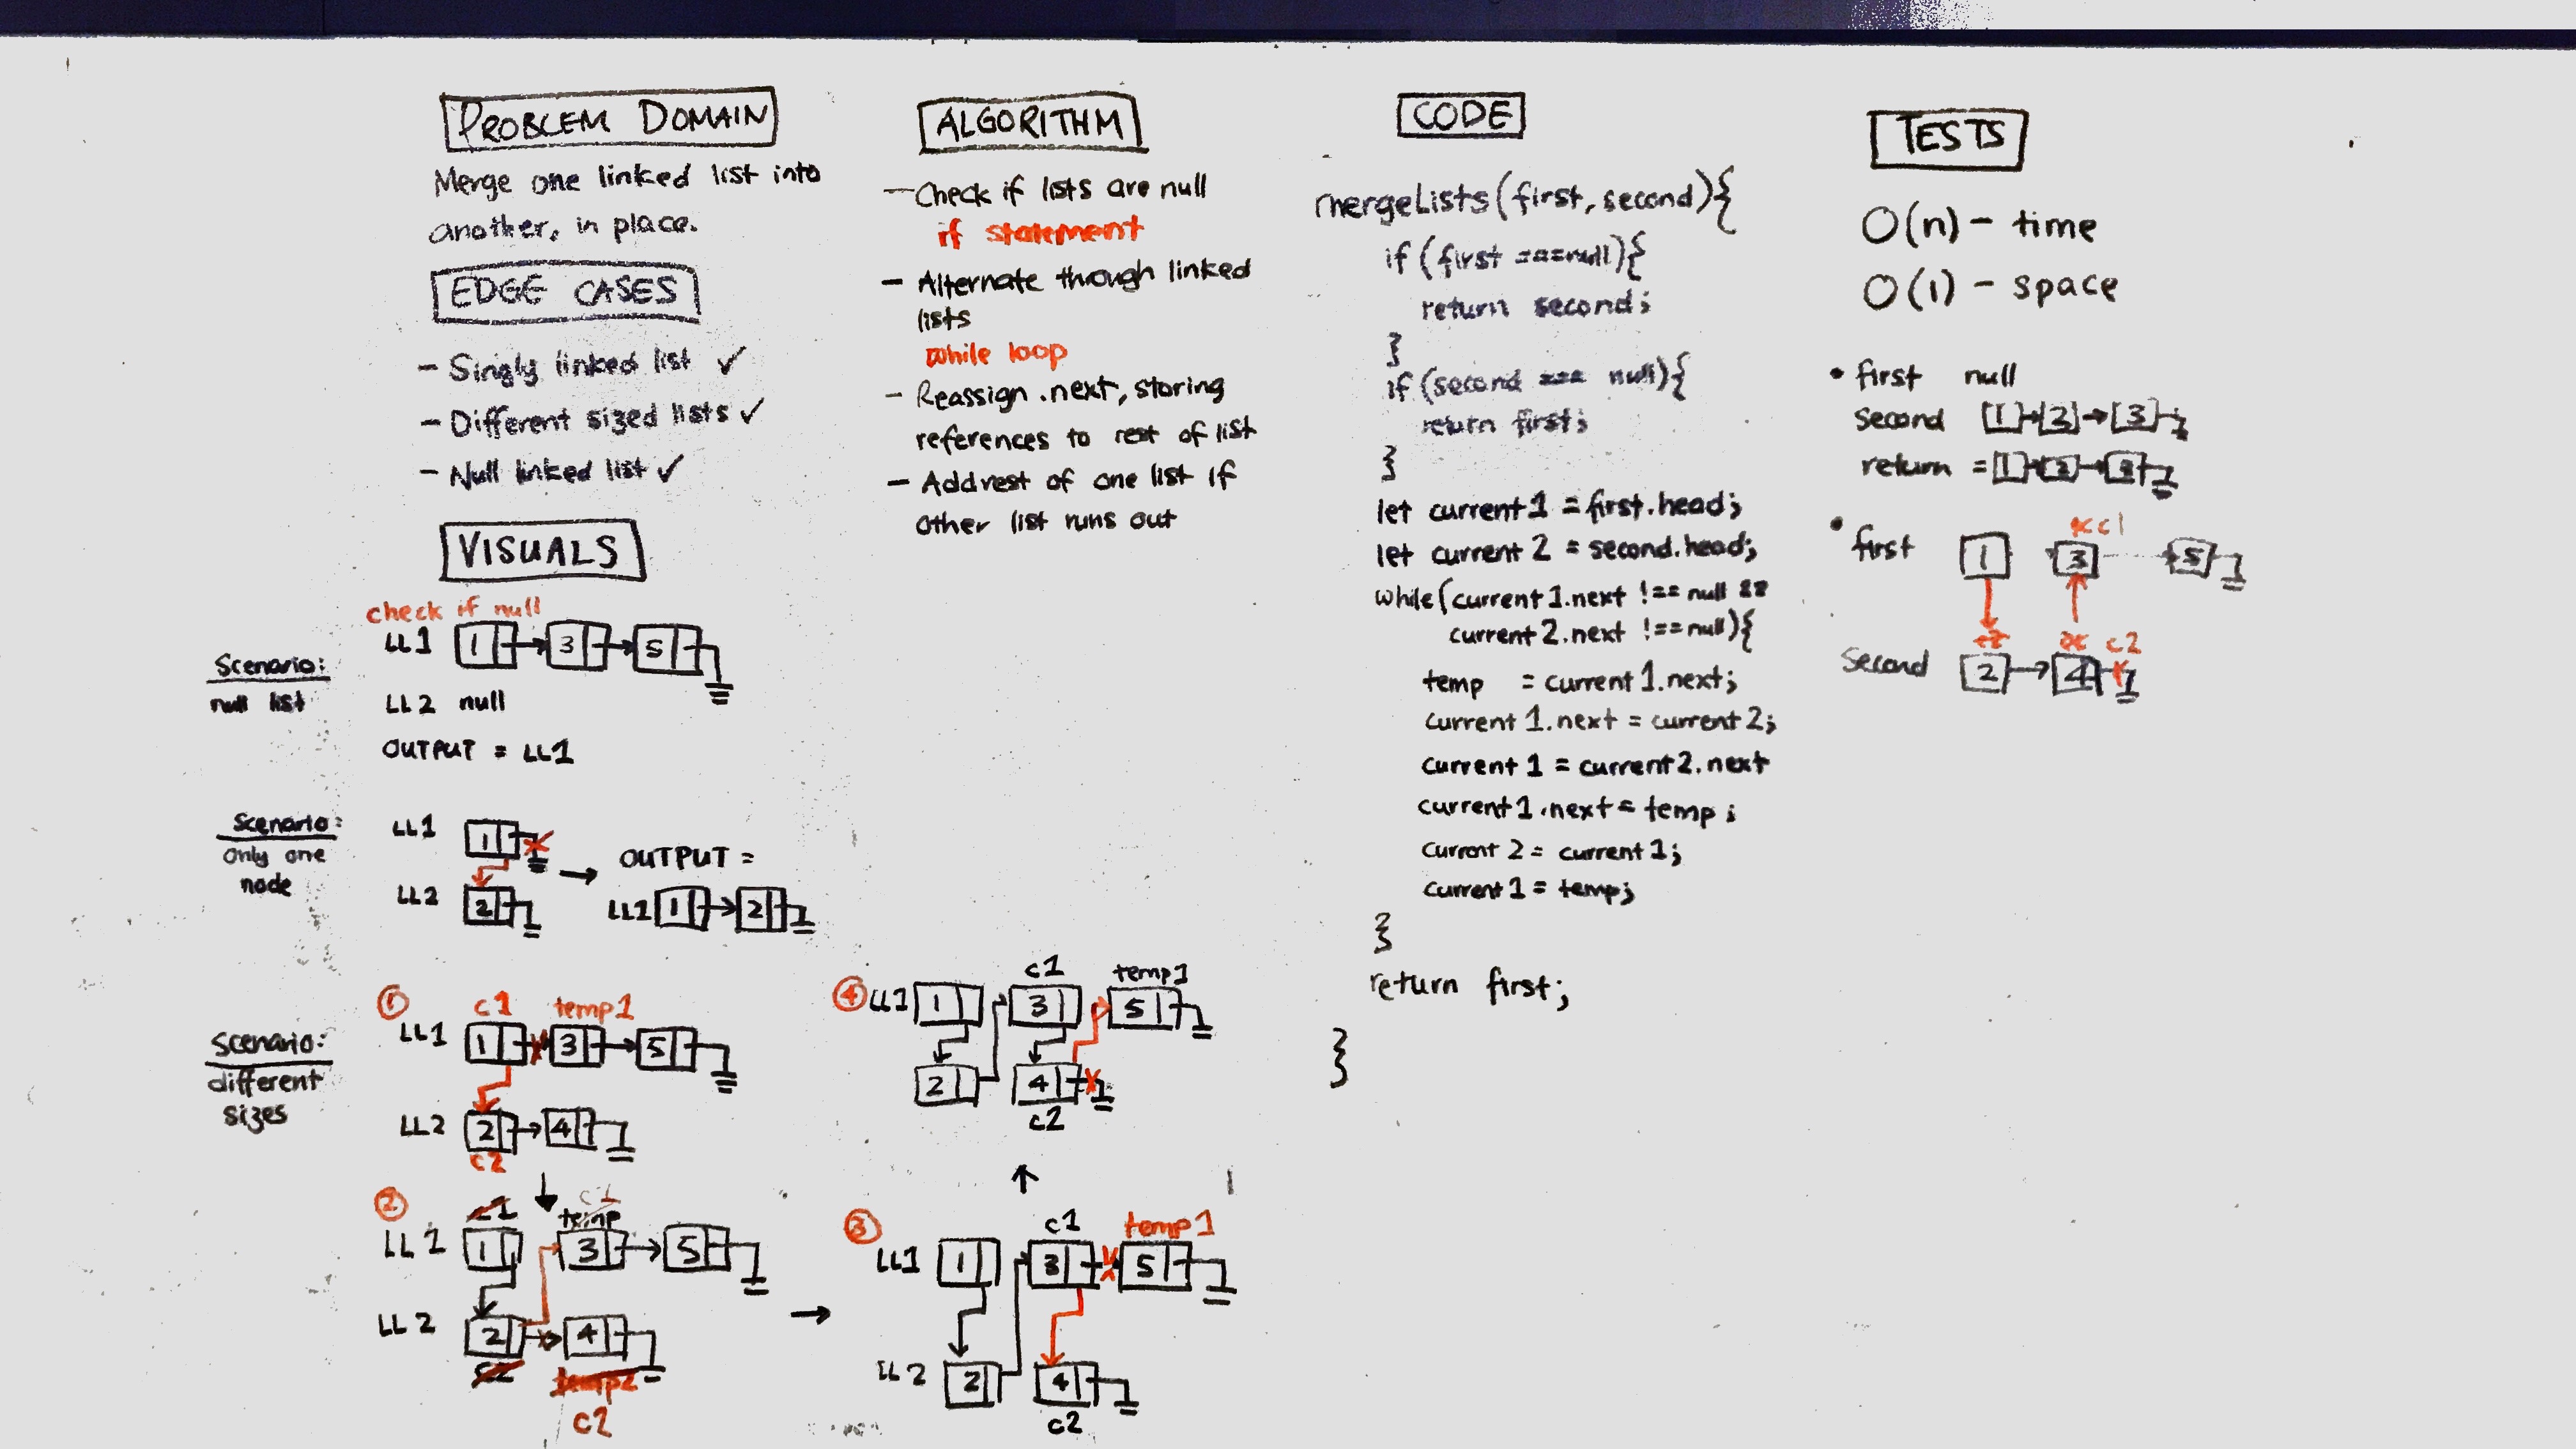 PROBLEM DOMAIN
Merge one linked list into
another, in place.
EDGE CASES
- Singly linked list ✓
- Different sized lists ✓
- Null linked list ✓
VISUALS
check if null
Scenario:
null list
LL1 1 3 5
LL2 null
OUTPUT = LL1
Scenario:
only one
node
LL1 1
LL2 2
OUTPUT =
LL1 1 2
Scenario:
different
sizes
① c1 temp1
LL1 1 3 5
LL2 2 4
c2
② c1 temp c1
LL1 1 3 5
LL2 2 4
c2 temp2
c2
③ c1 temp1
LL1 1 3 5
LL2 2 4
c2
④ c1 temp1
LL1 1 3 5
2 4
c2
ALGORITHM
- Check if lists are null
if statement
- Alternate through linked
lists
while loop
- Reassign .next, storing
references to rest of list
- Add rest of one list if
other list runs out
CODE
mergeLists(first, second){
if (first ===null){
return second;
}
if (second === null){
return first;
}
let current1 = first.head;
let current 2 = second.head;
while(current1.next !== null &&
current2.next !== null){
temp = current1.next;
current 1.next = current2;
current 1 = current2.next
current1.next = temp;
current 2 = current1;
current1 = temp;
}
return first;
}
TESTS
O(n) - time
O(1) - space
• first null
second 1 2 3
return = 1 2 3
• first 1 3 5
c1
c2
second 2 4